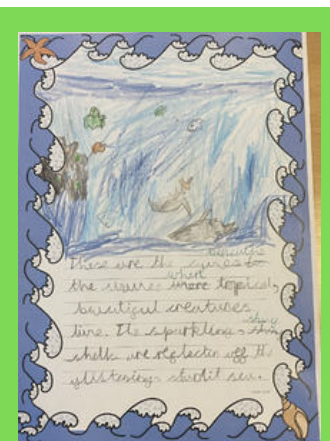 These are the
beneathe
where
the azure more tropical,
beautiful creatures
live. Its sparkling, shiny
shells are reflected off the
glistening starlit sea.